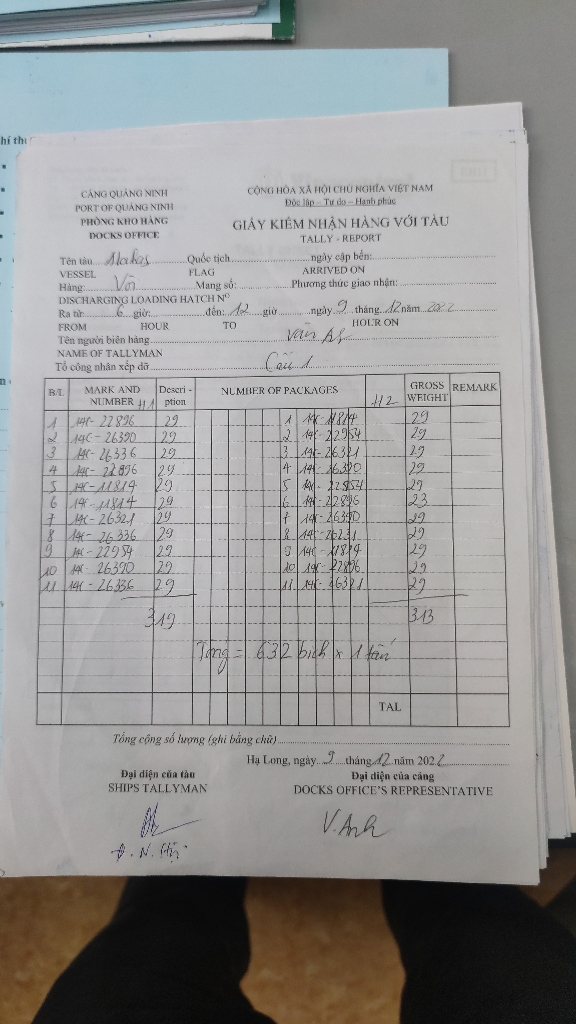 hí th
CẢNG QUẢNG NINH
PORT OF QUANG NINH
PHÒNG KHO HÀNG
DOCKS OFFICE
CỘNG HÒA XÃ HỘI CHỦ NGHĨA VIỆT NAM
Độc lập – Tự do – Hạnh phúc
GIẤY KIỂM NHẬN HÀNG VỚI TÀU
TALLY - REPORT
Tên tàu Quốc tịch ngày cập bến:
VESSEL FLAG ARRIVED ON
Hàng: Vôi Mang số: Phương thức giao nhận:
DISCHARGING LOADING HATCH Nº
Ra từ: 6 giờ: đến: 12 giờ ngày 9 tháng 12 năm 2022
FROM HOUR TO HOUR ON
Tên người biên hàng Vân A
NAME OF TALLYMAN
Tổ công nhân xếp dỡ Cầu 1
B/L MARK AND NUMBER #1 Descri - ption NUMBER OF PACKAGES #2 GROSS WEIGHT REMARK
1 14C-22896 29 1 14C-11814 29
2 14C-26390 29 2 14C-22954 29
3 14C-26336 29 3 14C-26321 29
4 14C-22896 29 4 14C-26390 29
5 14C-11814 29 5 14C-22954 29
6 14C-11814 29 6 14C-22896 23
7 14C-26321 29 7 14C-26390 29
8 14C-26336 29 8 14C-26231 29
9 14C-22954 29 9 14C-11814 29
10 14C-26390 29 10 14C-22896 29
11 14C-26336 29 11 14C-26321 29
319 313
Tổng = 632 bịch × 1 tấn
TAL
Tổng cộng số lượng (ghi bằng chữ)
Hạ Long, ngày 9 tháng 12 năm 2022
Đại diện của tàu Đại diện của cảng
SHIPS TALLYMAN DOCKS OFFICE'S REPRESENTATIVE
V. Anh